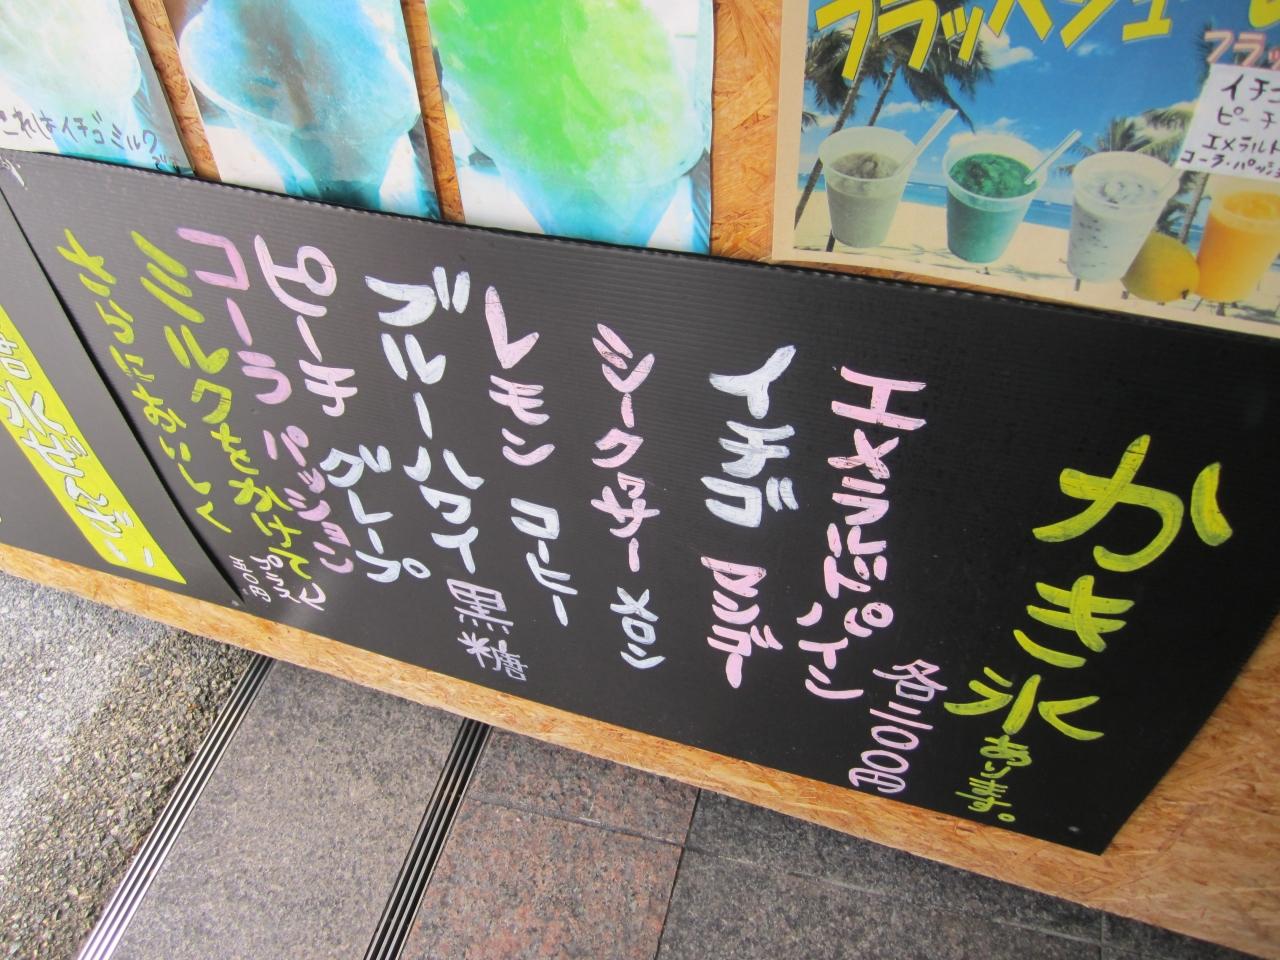 かき氷あります。
各三〇〇円
エメラルドパイン
イチゴ マンゴー
シークヮサー メロン
レモン コーヒー
ブルーハワイ 黒糖
ピーチ グレープ
コーラ パッション
ミルクをかけて
さらにおいしく
プラス
五〇円
これはイチゴミルク
です
フラッペジュー
フラッ
イチゴ
ピーチ
エメラルド
コーラ・パッショ